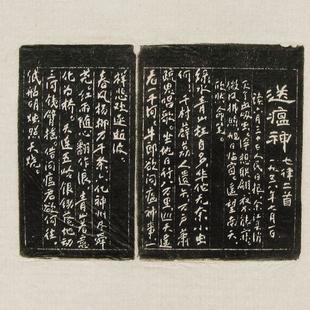 送瘟神 七律二首
一九五八年七月一日
读六月三十日人民日报，余江县消
灭了血吸虫。浮想联翩，夜不能寐。
微风拂煦，旭日临窗。遥望南天，
欣然命笔。
绿水青山枉自多，华佗无奈小虫
何！千村薜荔人遗矢，万户萧
疏鬼唱歌。坐地日行八万里，巡天遥
看一千河。牛郎欲问瘟神事，一
样悲欢逐逝波。
春风杨柳万千条，六亿神州尽舜
尧。红雨随心翻作浪，青山着意
化为桥。天连五岭银锄落，地动
三河铁臂摇。借问瘟君欲何往，
纸船明烛照天烧。